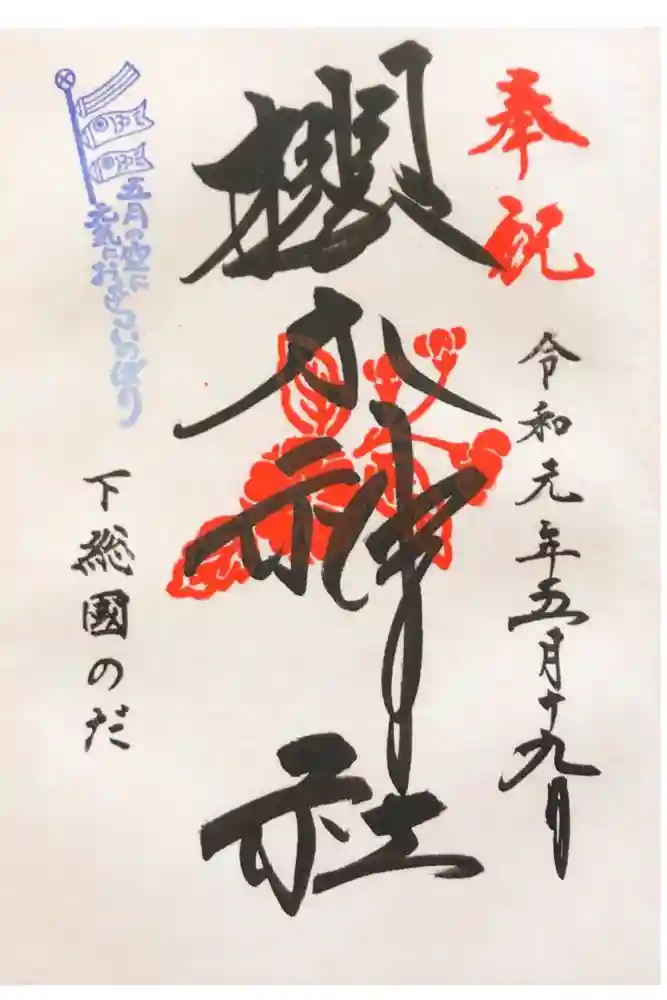 奉祝
令和元年五月十九日
櫻木神社
五月の空に
元気におよぐこいのぼり
下総國のだ